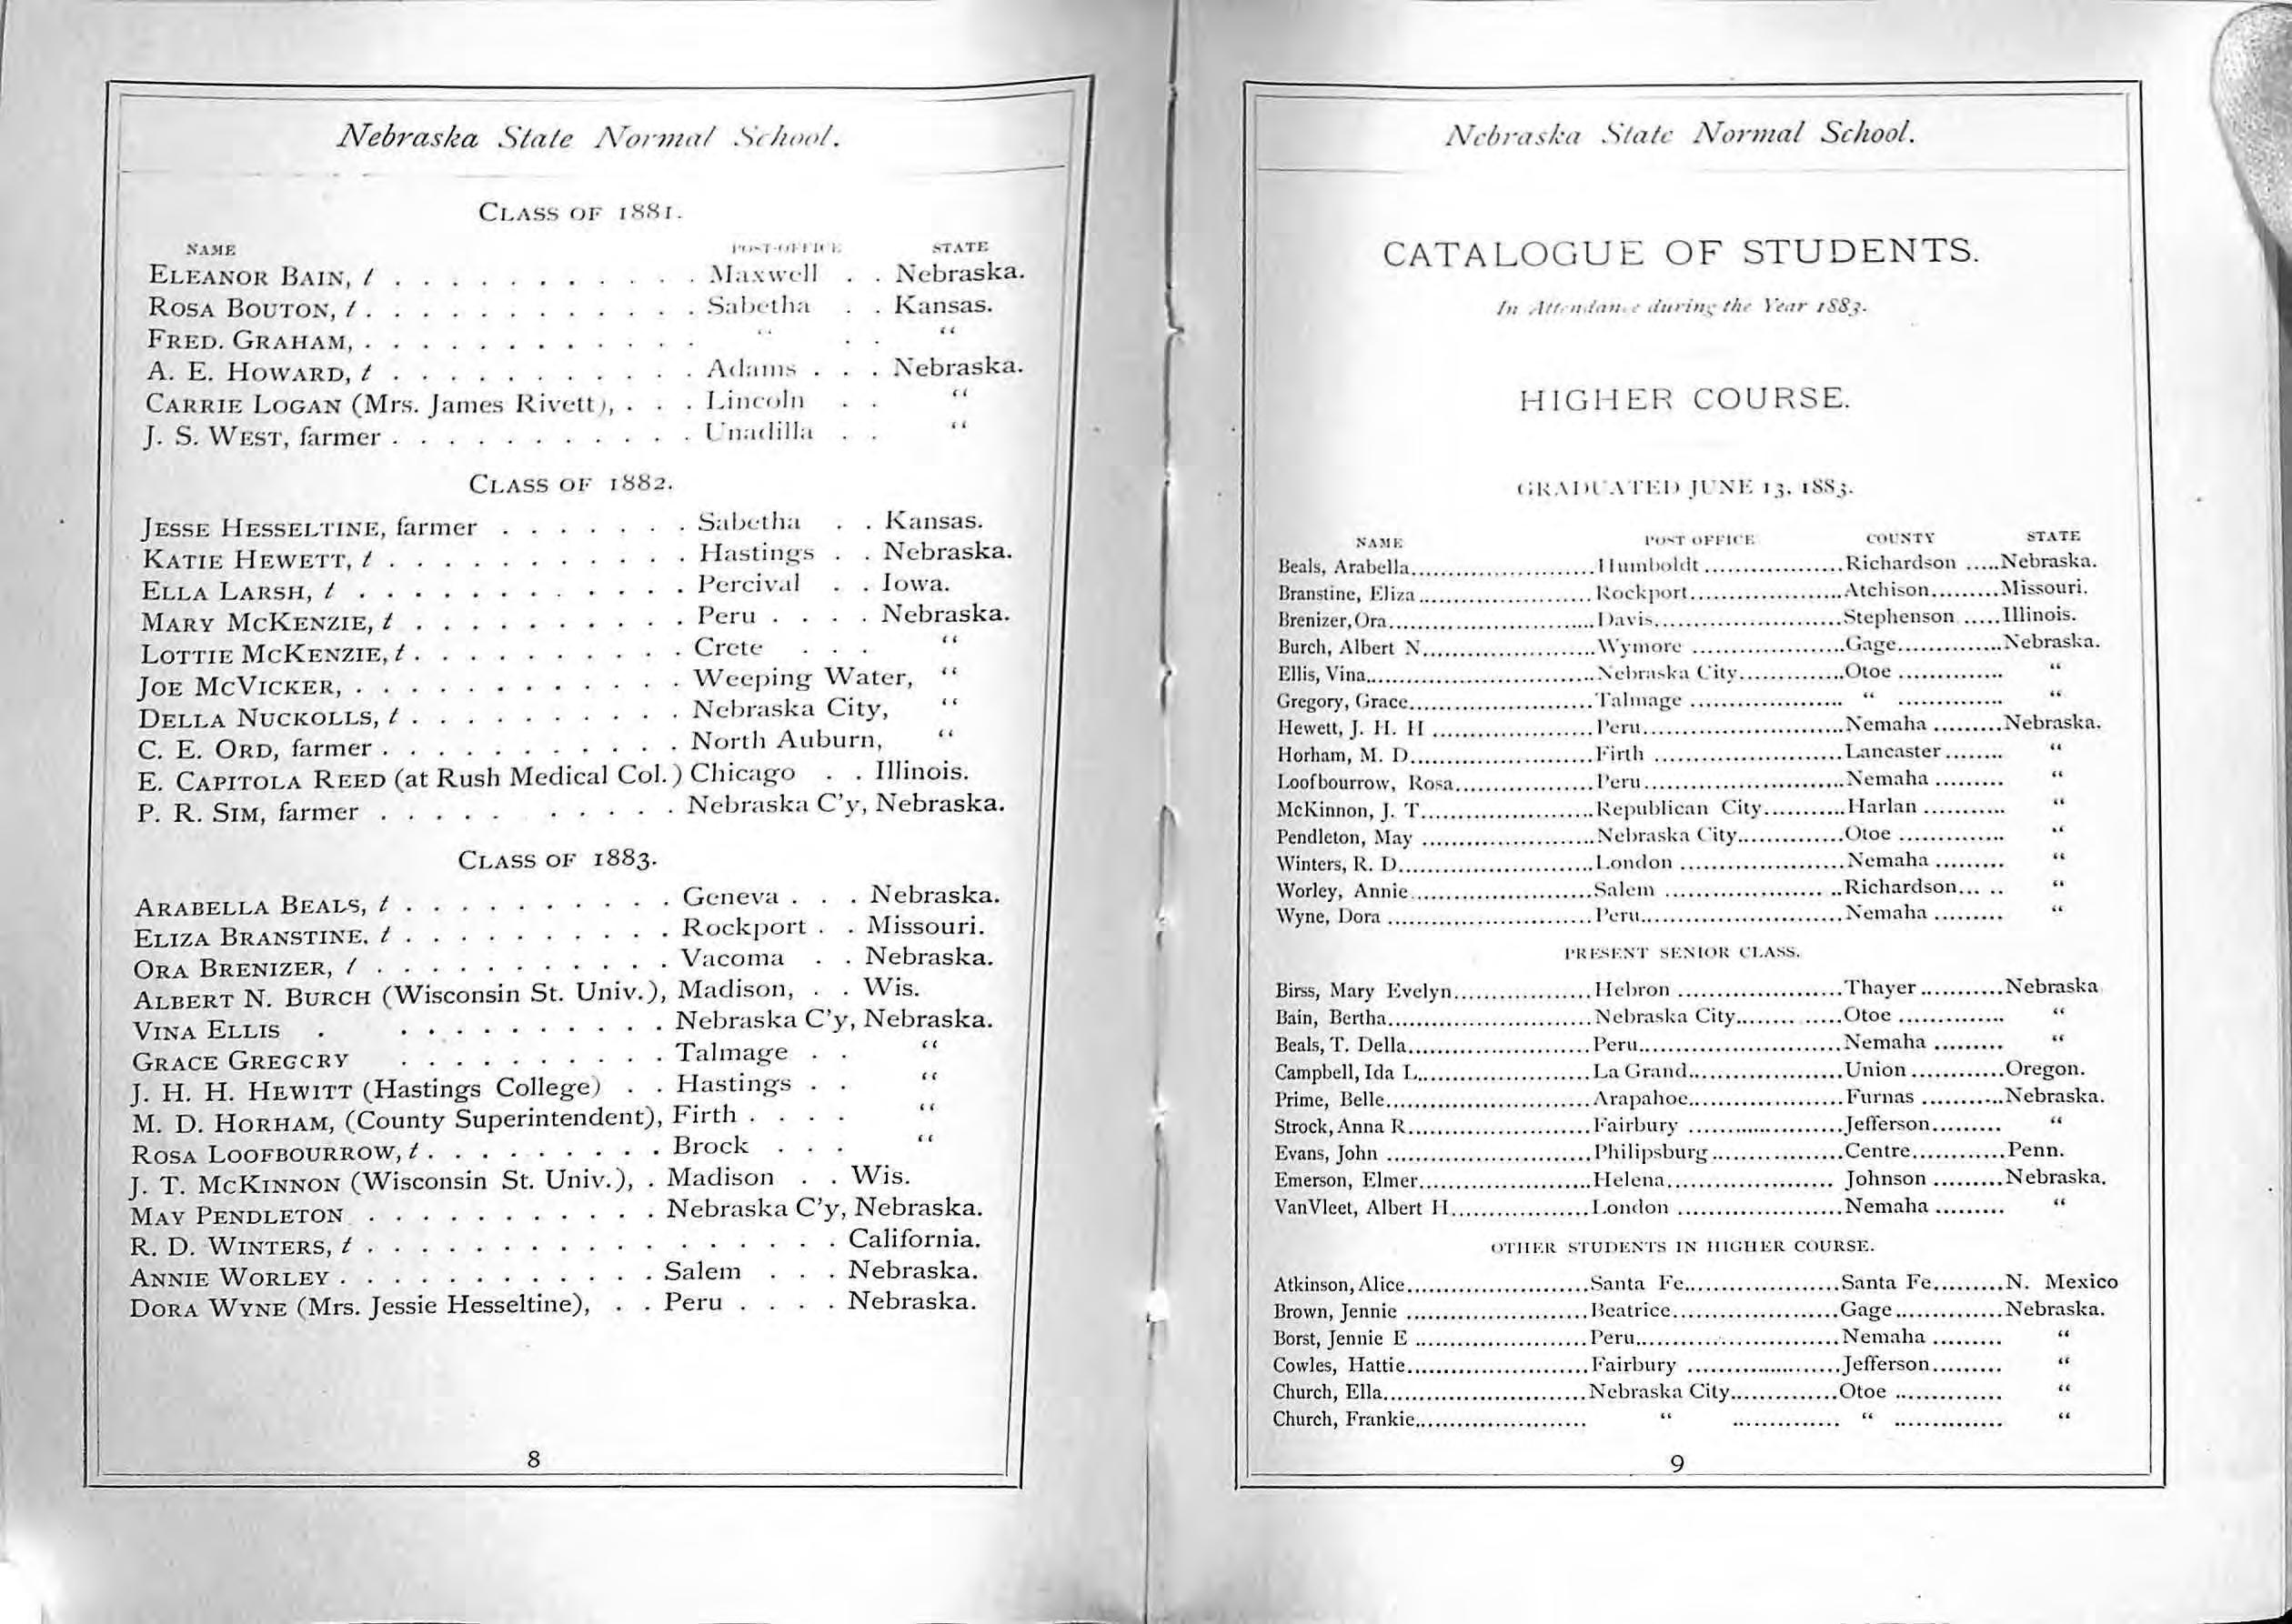 Nebraska State Normal School.
CLASS OF 1881.
NAME POST-OFFICE STATE
ELEANOR BAIN, t . . . . . . . . . . . Maxwell . . Nebraska.
ROSA BOUTON, t . . . . . . . . . . . . Sabetha . . Kansas.
FRED. GRAHAM, . . . . . . . . . . . . “ . . “
A. E. HOWARD, t . . . . . . . . . . . Adams . . . Nebraska.
CARRIE LOGAN (Mrs. James Rivett), . . . Lincoln . . “
J. S. WEST, farmer . . . . . . . . . . . Unadilla . . “
CLASS OF 1882.
JESSE HESSELTINE, farmer . . . . . . . Sabetha . . Kansas.
KATIE HEWETT, t . . . . . . . . . . . Hastings . . Nebraska.
ELLA LARSH, t . . . . . . . . . . . . Percival . . Iowa.
MARY MCKENZIE, t . . . . . . . . . . Peru . . . . Nebraska.
LOTTIE MCKENZIE, t . . . . . . . . . . Crete . . . “
JOE MCVICKER, . . . . . . . . . . . . Weeping Water, “
DELLA NUCKOLLS, t . . . . . . . . . . Nebraska City, “
C. E. ORD, farmer . . . . . . . . . . . North Auburn, “
E. CAPITOLA REED (at Rush Medical Col.) Chicago . . Illinois.
P. R. SIM, farmer . . . . . . . . . . Nebraska C’y, Nebraska.
CLASS OF 1883.
ARABELLA BEALS, t . . . . . . . . . . Geneva . . . Nebraska.
ELIZA BRANSTINE. t . . . . . . . . . . Rockport . . Missouri.
ORA BRENIZER, t . . . . . . . . . . . Vacoma . . Nebraska.
ALBERT N. BURCH (Wisconsin St. Univ.), Madison, . . Wis.
VINA ELLIS . . . . . . . . . . . Nebraska C’y, Nebraska.
GRACE GREGCRY . . . . . . . . . . Talmage . . “
J. H. H. HEWITT (Hastings College) . . Hastings . . “
M. D. HORHAM, (County Superintendent), Firth . . . . “
ROSA LOOFBOURROW, t . . . . . . . . . Brock . . . “
J. T. MCKINNON (Wisconsin St. Univ.), . Madison . . Wis.
MAY PENDLETON . . . . . . . . . . . Nebraska C’y, Nebraska.
R. D. WINTERS, t . . . . . . . . . . . . . . . . . California.
ANNIE WORLEY . . . . . . . . . . . . Salem . . . Nebraska.
DORA WYNE (Mrs. Jessie Hesseltine), . . Peru . . . . Nebraska.
8
Nebraska State Normal School.
CATALOGUE OF STUDENTS.
In Attendance during the Year 1883.
HIGHER COURSE.
GRADUATED JUNE 13, 1883.
NAME POST OFFICE COUNTY STATE
Beals, Arabella........................Humboldt..................Richardson .....Nebraska.
Branstine, Eliza.......................Rockport....................Atchison.........Missouri.
Brenizer, Ora...........................Davis.........................Stephenson .....Illinois.
Burch, Albert N.......................Wymore ....................Gage..............Nebraska.
Ellis, Vina..............................Nebraska City..............Otoe .............. “
Gregory, Grace........................Talmage .................... “ .............. “
Hewett, J. H. H .....................Peru..........................Nemaha .........Nebraska.
Horham, M. D........................Firth .........................Lancaster........ “
Loofbourrow, Rosa..................Peru..........................Nemaha ......... “
McKinnon, J. T.......................Republican City...........Harlan ........... “
Pendleton, May .......................Nebraska City..............Otoe .............. “
Winters, R. D..........................London ......................Nemaha ......... “
Worley, Annie........................Salem .......................Richardson... .. “
Wyne, Dora ...........................Peru..........................Nemaha ......... “
PRESENT SENIOR CLASS.
Birss, Mary Evelyn..................Hebron ......................Thayer...........Nebraska
Bain, Bertha...........................Nebraska City........ .....Otoe .............. “
Beals, T. Della........................Peru..........................Nemaha ......... “
Campbell, Ida L.......................La Grand....................Union ............Oregon.
Prime, Belle...........................Arapahoe....................Furnas ...........Nebraska.
Strock, Anna R........................Fairbury .....................Jefferson......... “
Evans, John ...........................Philipsburg.................Centre............Penn.
Emerson, Elmer.......................Helena...................... Johnson .........Nebraska.
VanVleet, Albert H..................London ......................Nemaha ......... “
OTHER STUDENTS IN HIGHER COURSE.
Atkinson, Alice........................Santa Fe....................Santa Fe.........N. Mexico
Brown, Jennie ........................Beatrice......................Gage..............Nebraska.
Borst, Jennie E .......................Peru..........................Nemaha ......... “
Cowles, Hattie........................Fairbury .....................Jefferson......... “
Church, Ella...........................Nebraska City..............Otoe .............. “
Church, Frankie....................... “ .............. “ .............. “
9